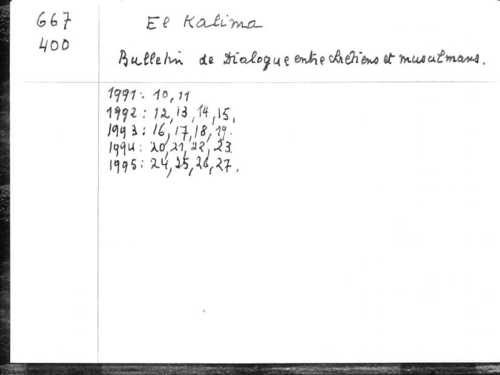 667
400
El Kalima
Bulletin de Dialogue entre chrétiens et musulmans.
1991: 10, 11
1992: 12, 13, 14, 15.
1993: 16, 17, 18, 19.
1994: 20, 21, 22, 23.
1995: 24, 25, 26, 27.